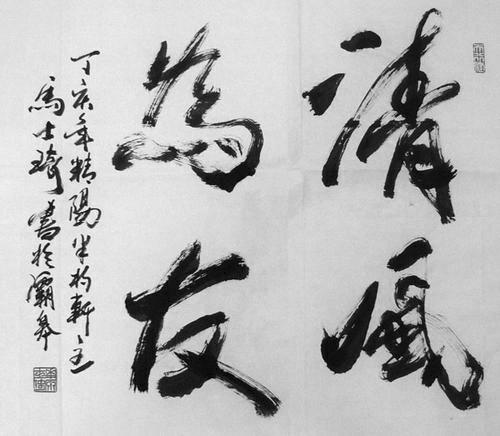 清風
為友
丁亥年精陽半杓軒主
馬士琦書於灞皋